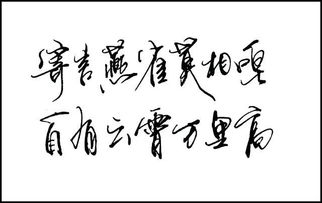 寄言燕雀莫相唣
自有云霄万里高